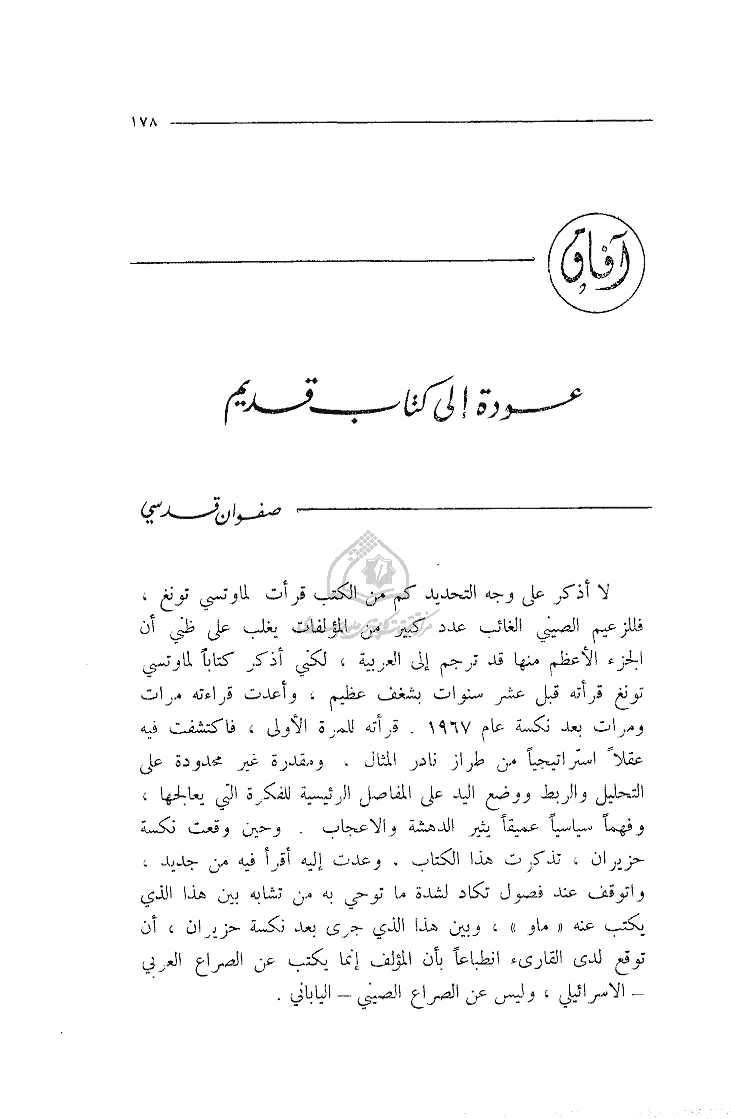 ١٧٨
آفاق
عودة إلى كتاب قديم
صفوان قدسي
لا أذكر على وجه التحديد كم من الكتب قرأت لماوتسي تونغ ،
فللزعيم الصيني الغائب عدد كبير من المؤلفات يغلب على ظني أن
الجزء الأعظم منها قد ترجم إلى العربية ، لكني أذكر كتاباً لماوتسي
تونغ قرأته قبل عشر سنوات بشغف عظيم ، وأعدت قراءته مرات
ومرات بعد نكسة عام ١٩٦٧ . قرأته للمرة الأولى ، فاكتشفت فيه
عقلاً استراتيجياً من طراز نادر المثال . ومقدرة غير محدودة على
التحليل والربط ووضع اليد على المفاصل الرئيسية للفكرة التي يعالجها ،
وفهماً سياسياً عميقاً يثير الدهشة والاعجاب . وحين وقعت نكسة
حزيران ، تذكرت هذا الكتاب . وعدت إليه أقرأ فيه من جديد ،
واتوقف عند فصول تكاد لشدة ما توحي به من تشابه بين هذا الذي
يكتب عنه « ماو » ، وبين هذا الذي جرى بعد نكسة حزيران ، أن
توقع لدى القارىء انطباعاً بأن المؤلف إنما يكتب عن الصراع العربي
– الاسرائيلي ، وليس عن الصراع الصيني – الياباني .